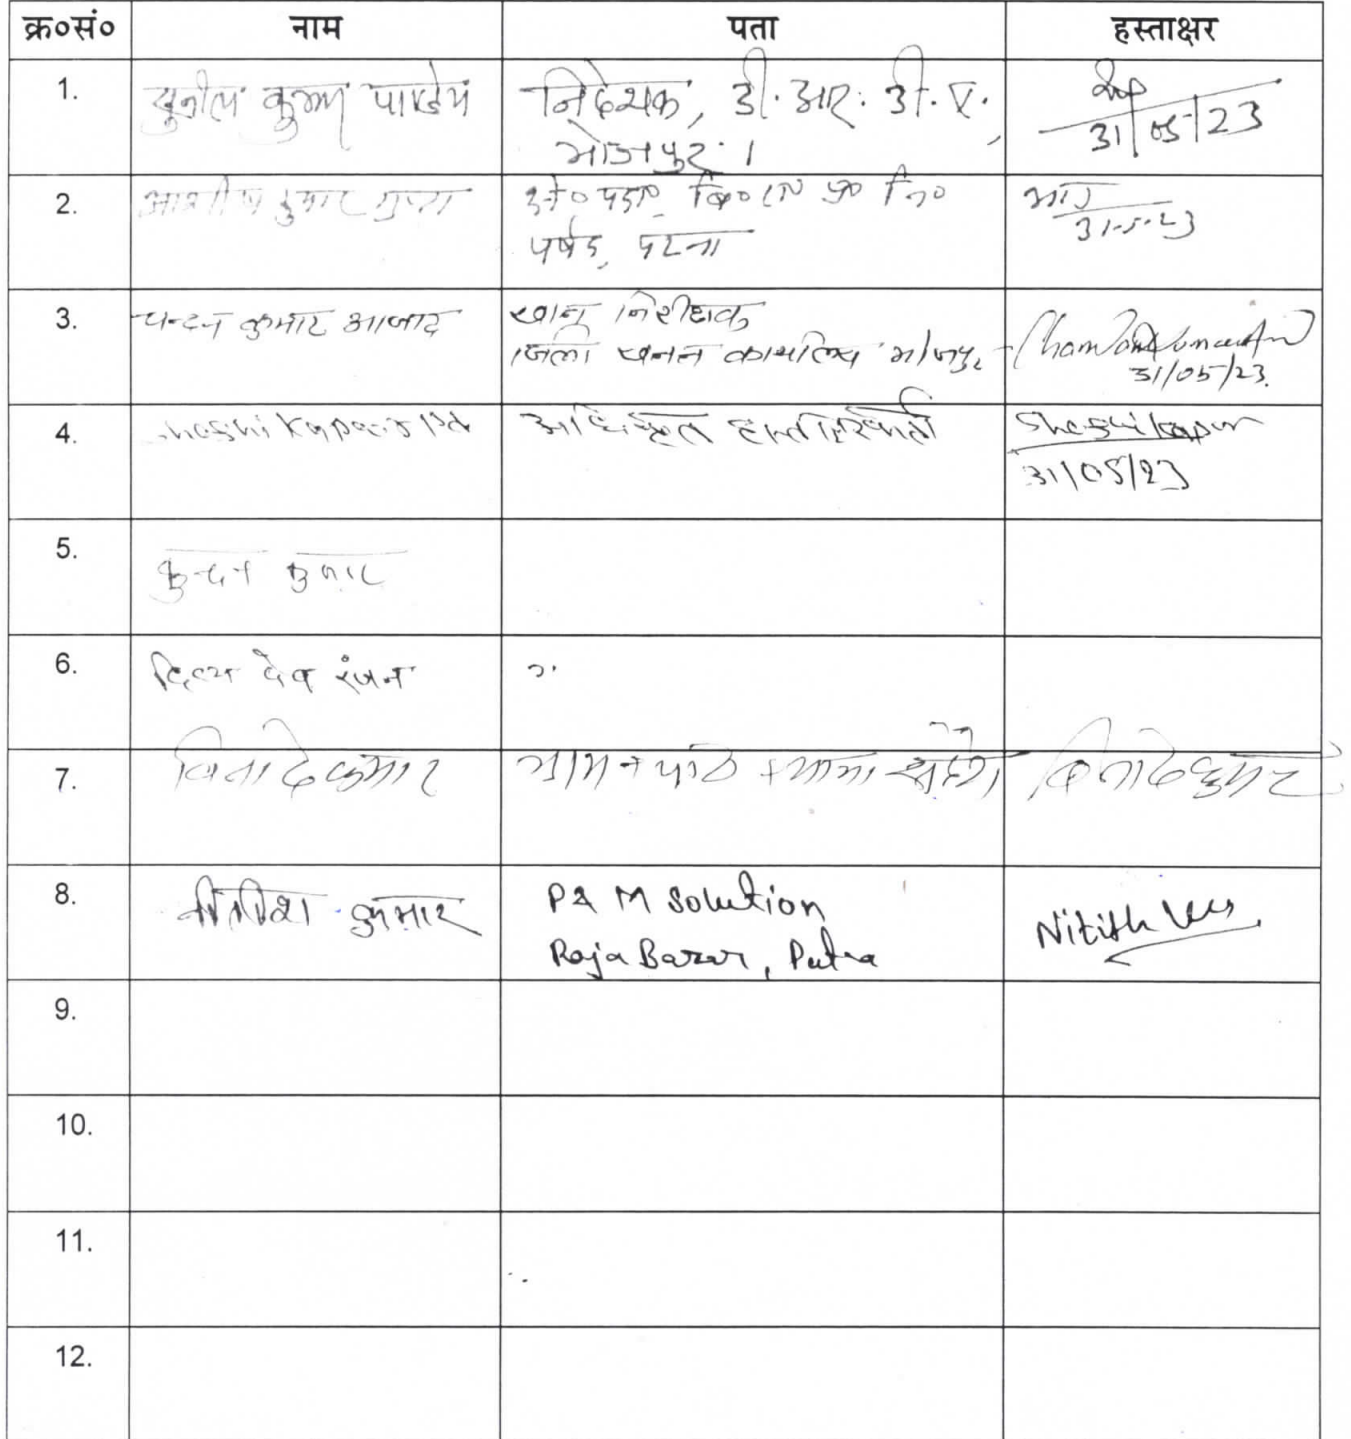 क्र०सं० नाम पता हस्ताक्षर
1. सुनील कुमार पाण्डेय निदेशक, डी.आर.डी.ए., 31/05/23
भोजपुर।
2. आशीष कुमार गुप्ता 31.5.23
पर्षद, पटना
3. चन्दन कुमार आजाद खान निरीक्षक
जिला खनन कार्यालय भोजपुर 31/05/23.
4. Shashi Kapoor अधिकृत हस्ताक्षरकर्ता Shashi Kapur
31/05/23
5. कुन्दन कुमार
6. दिव्य देव रंजन
7. विनोद कुमार ग्राम + पो० + थाना विनोद कुमार
8. नीतीश कुमार P & M Solution Nitish
Raja Bazar, Patna
9.
10.
11.
12.